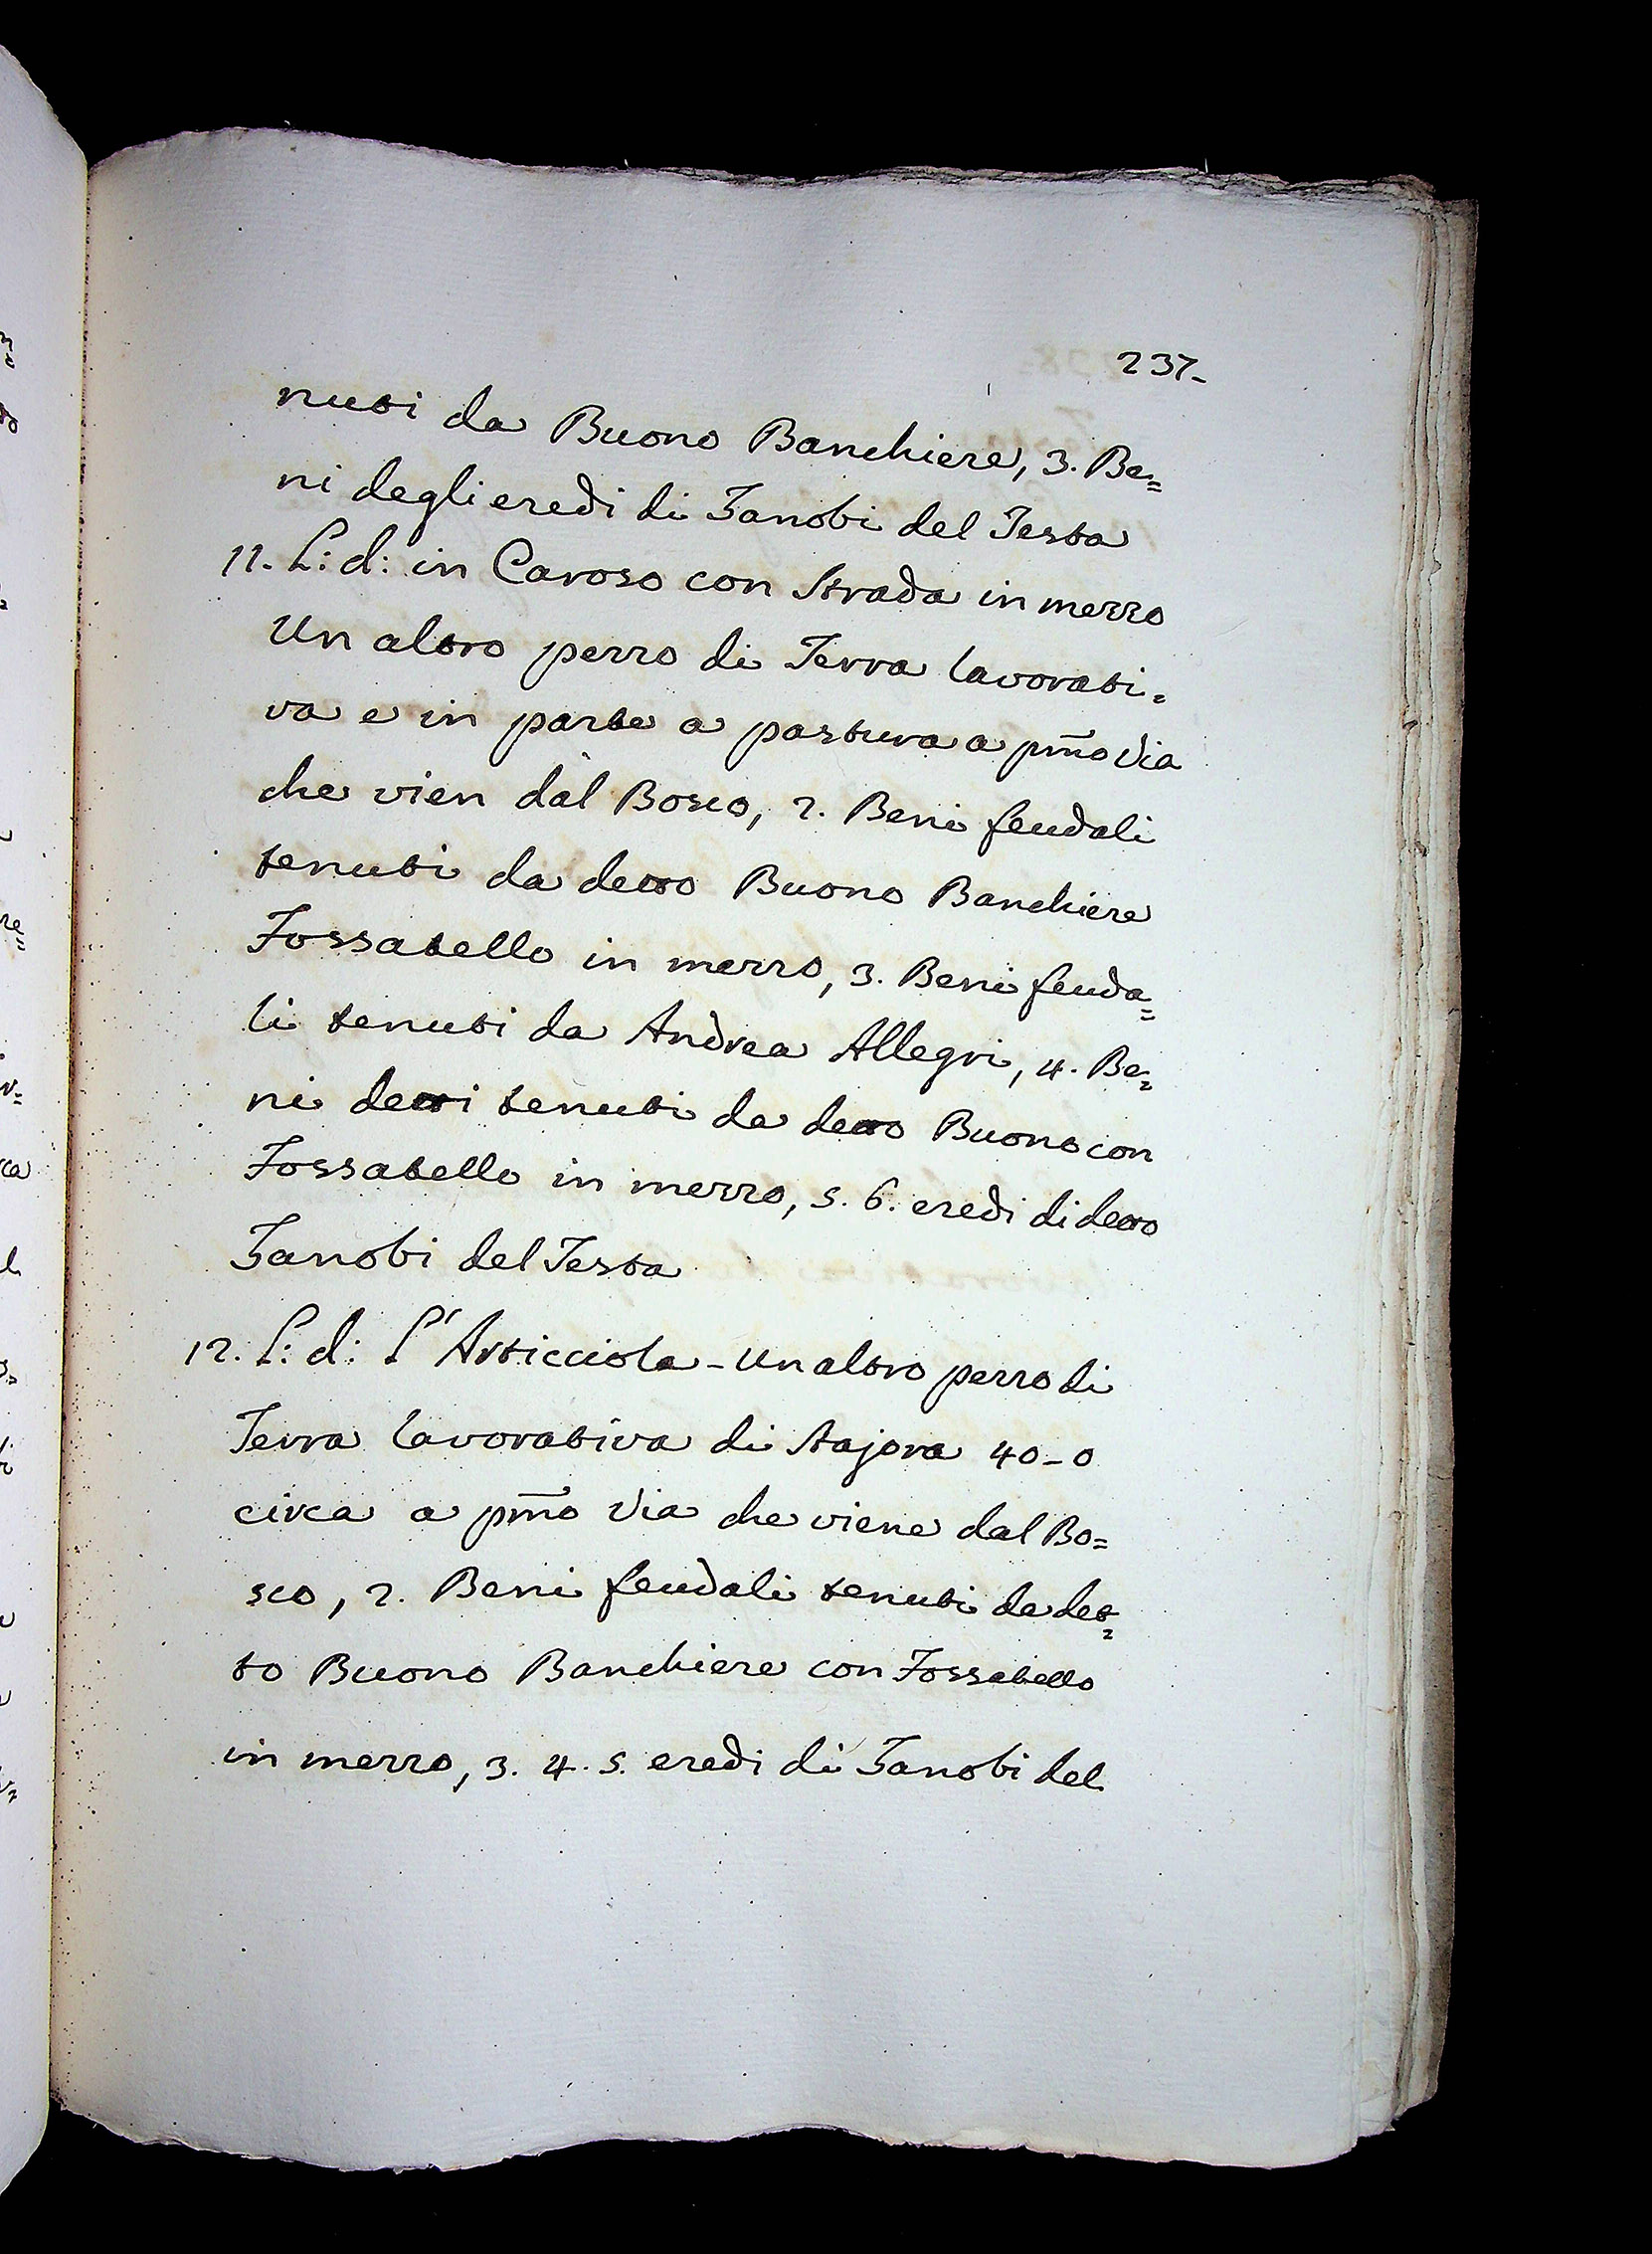 237-
nuti da Buono Banchiere, 3. Be=
ni degli eredi di Zanobi del Testa
11. L: d: in Caroso con Strada in mezzo
Un altro pezzo di Terra lavorati=
va e in parte a pastura a pm̃o Via
che vien dal Bosco, 2. Beni feudali
tenuti da detto Buono Banchiere
Fossatello in mezzo, 3. Beni feuda=
li tenuti da Andrea Allegri, 4. Be=
ni detti tenuti da detto Buono con
Fossatello in mezzo, 5. 6. eredi di detto
Zanobi del Testa
12. L: d: L'Articciola - Un altro pezzo di
Terra lavorativa di Stajora 40-0
circa a pm̃o Via che viene dal Bo=
sco, 2. Beni feudali tenuti da det=
to Buono Banchiere con Fossatello
in mezzo, 3. 4. 5. eredi di Zanobi del